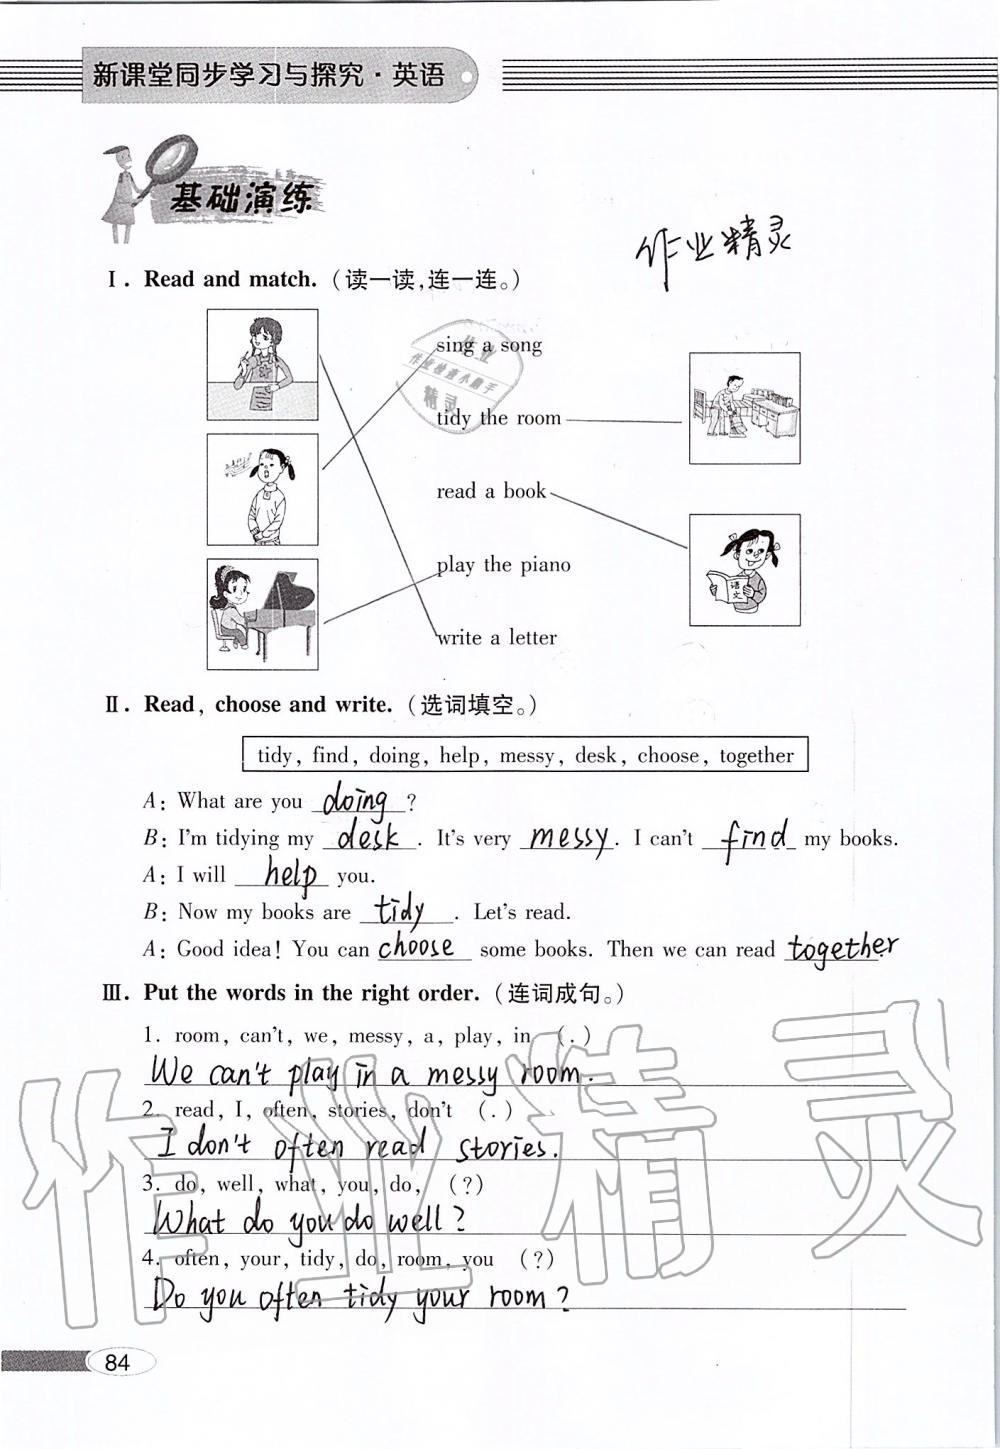 新课堂同步学习与探究·英语
基础演练
作业精灵
Ⅰ. Read and match.(读一读,连一连。)
sing a song
作业
作业检查小助手
精灵
tidy the room
read a book
语文
play the piano
write a letter
Ⅱ. Read, choose and write.(选词填空。)
tidy, find, doing, help, messy, desk, choose, together
A: What are you doing ?
B: I'm tidying my desk . It's very messy . I can't find my books.
A: I will help you.
B: Now my books are tidy . Let's read.
A: Good idea! You can choose some books. Then we can read together
Ⅲ. Put the words in the right order.(连词成句。)
1. room, can't, we, messy, a, play, in (.)
We can't play in a messy room.
2. read, I, often, stories, don't (.)
I don't often read stories.
3. do, well, what, you, do, (?)
What do you do well?
4. often, your, tidy, do, room, you (?)
Do you often tidy your room?
作业精灵
84